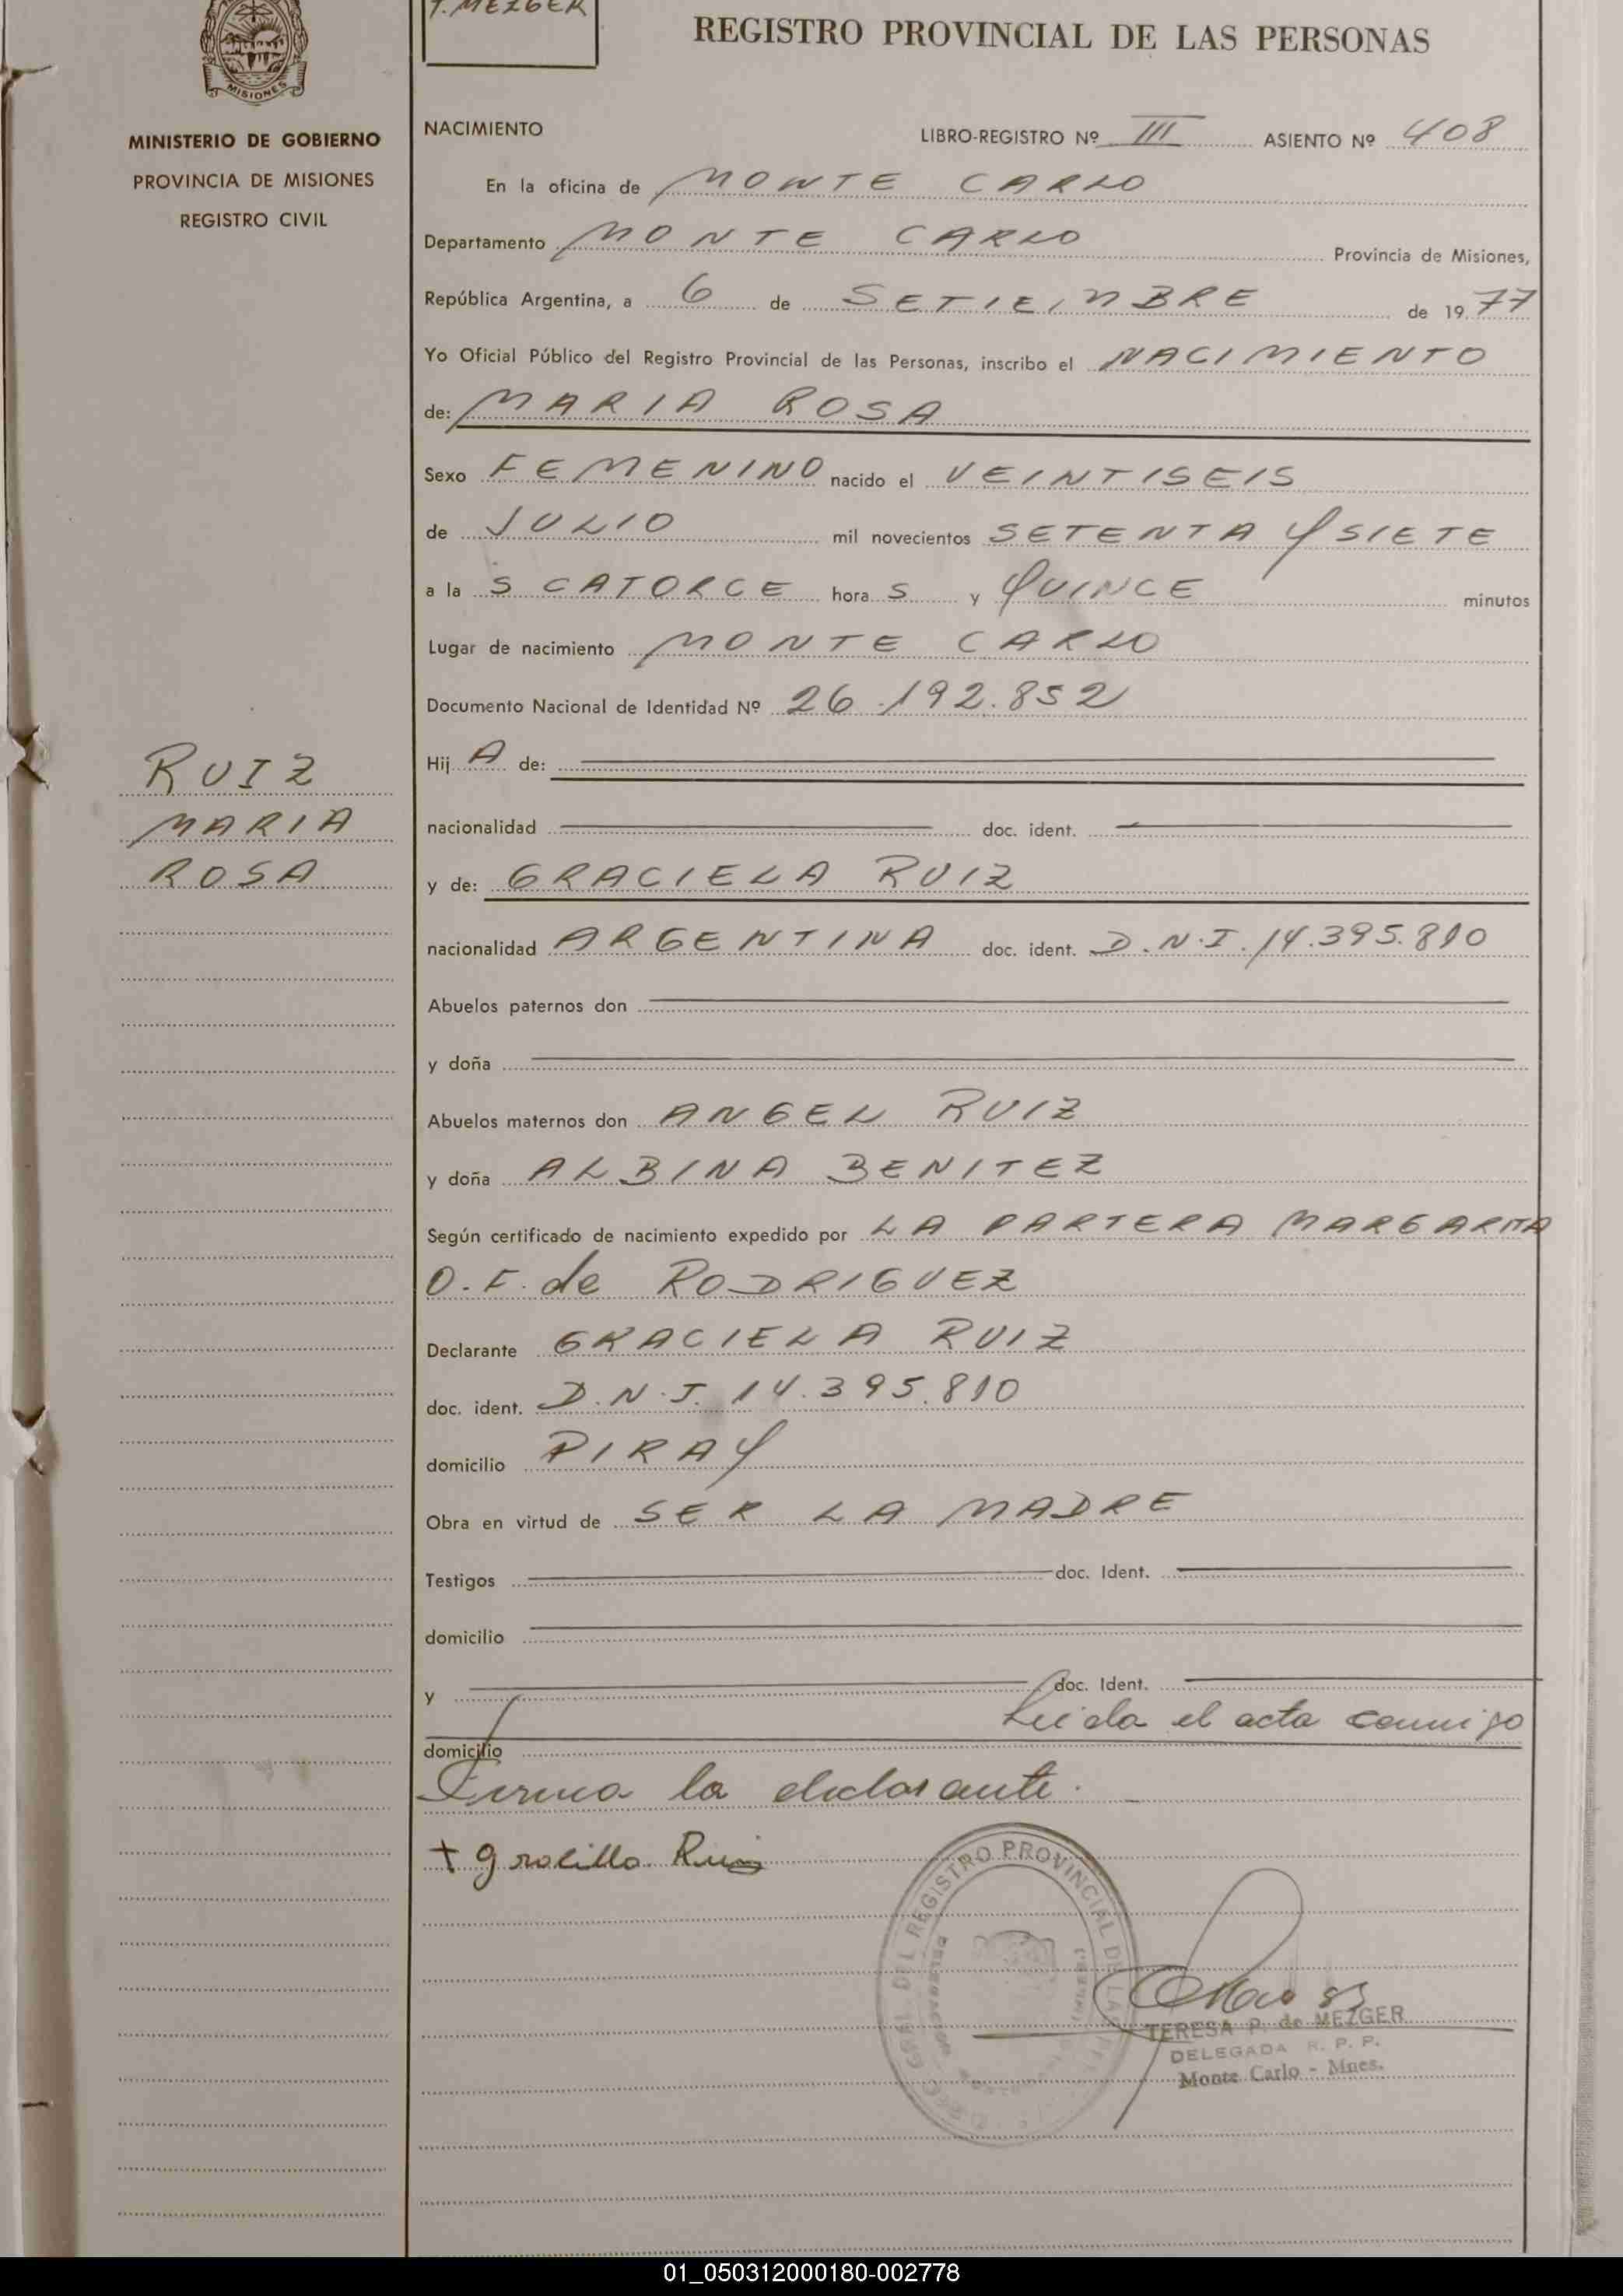 T. MEZGER
REGISTRO PROVINCIAL DE LAS PERSONAS
MISIONES
MINISTERIO DE GOBIERNO
PROVINCIA DE MISIONES
REGISTRO CIVIL
RUIZ
MARIA
ROSA
NACIMIENTO
LIBRO-REGISTRO Nº III ASIENTO Nº 408
En la oficina de MONTE CARLO
Departamento MONTE CARLO Provincia de Misiones,
República Argentina, a 6 de SETIEMBRE de 1977
Yo Oficial Público del Registro Provincial de las Personas, inscribo el NACIMIENTO
de: MARIA ROSA
Sexo FEMENINO nacido el VEINTISEIS
de JULIO mil novecientos SETENTA Y SIETE
a la S CATORCE hora S y QUINCE minutos
Lugar de nacimiento MONTE CARLO
Documento Nacional de Identidad Nº 26.192.852
Hij A de:
nacionalidad doc. ident.
y de: GRACIELA RUIZ
nacionalidad ARGENTINA doc. ident. D.N.I. 14.395.810
Abuelos paternos don
y doña
Abuelos maternos don ANGEL RUIZ
y doña ALBINA BENITEZ
Según certificado de nacimiento expedido por LA PARTERA MARGARITA
O.F. de RODRIGUEZ
Declarante GRACIELA RUIZ
doc. ident. D.N.I. 14.395.810
domicilio PIRAY
Obra en virtud de SER LA MADRE
Testigos doc. Ident.
domicilio
y doc. Ident.
Leida el acta conmigo
domicilio
Firma la declarante.
+ grasilla Ruiz
REGISTRO PROVINCIAL DE LAS
TERESA P. de MEZGER
DELEGADA R. P. P.
Monte Carlo - Mnes.
01_050312000180-002778